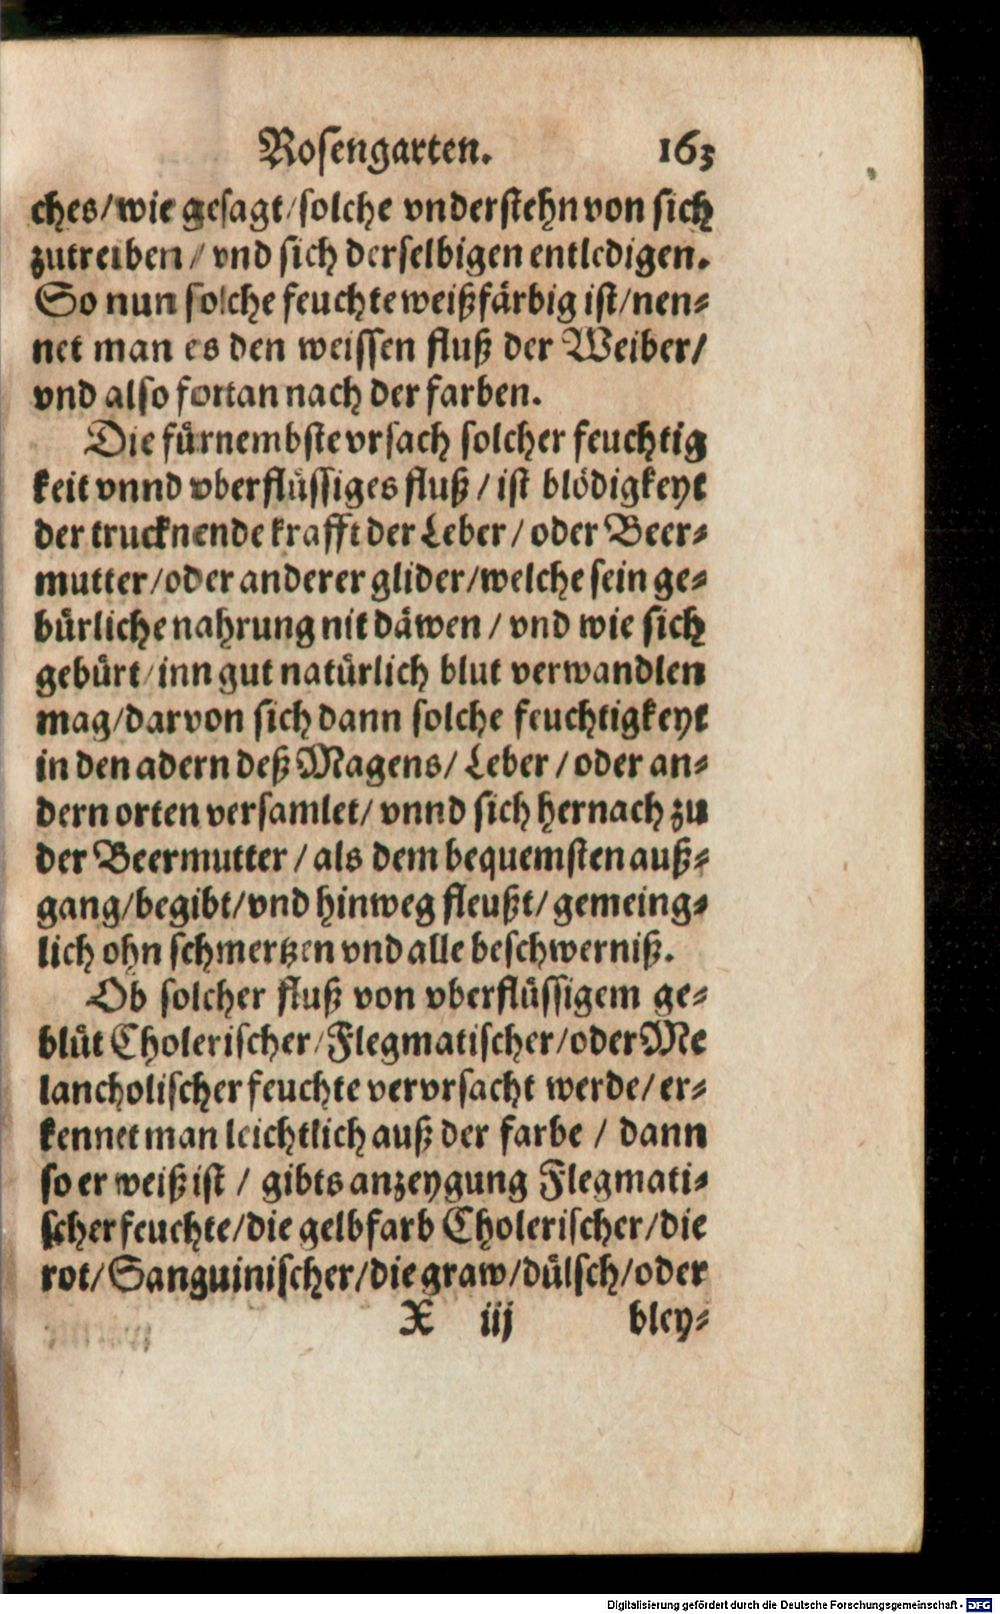 Rosengarten. 163
ches/wie gesagt/solche vnderstehn von sich
zutreiben/vnd sich derselbigen entledigen.
So nun solche feuchte weißfärbig ist/nen-
net man es den weissen fluß der Weiber/
vnd also fortan nach der farben.
Die fürnembste vrsach solcher feuchtig
keit vnnd vberflüssiges fluß/ist blödigkeyt
der trucknende krafft der Leber/oder Beer-
mutter/oder anderer glider/welche sein ge-
bürliche nahrung nit däwen/vnd wie sich
gebürt/inn gut natürlich blut verwandlen
mag/darvon sich dann solche feuchtigkeyt
in den adern deß Magens/Leber/oder an-
dern orten versamlet/vnnd sich hernach zu
der Beermutter/als dem bequemsten auß-
gang/begibt/vnd hinweg fleußt/gemeing-
lich ohn schmertzen vnd alle beschwerniß.
Ob solcher fluß von vberflüssigem ge-
blüt Cholerischer/Flegmatischer/oder Me
lancholischer feuchte vervrsacht werde/er-
kennet man leichtlich auß der farbe/dann
so er weiß ist/gibts anzeygung Flegmati-
scher feuchte/die gelbfarb Cholerischer/die
rot/Sanguinischer/die graw/dülsch/oder
X iij bley-
Digitalisierung gefördert durch die Deutsche Forschungsgemeinschaft - DFG